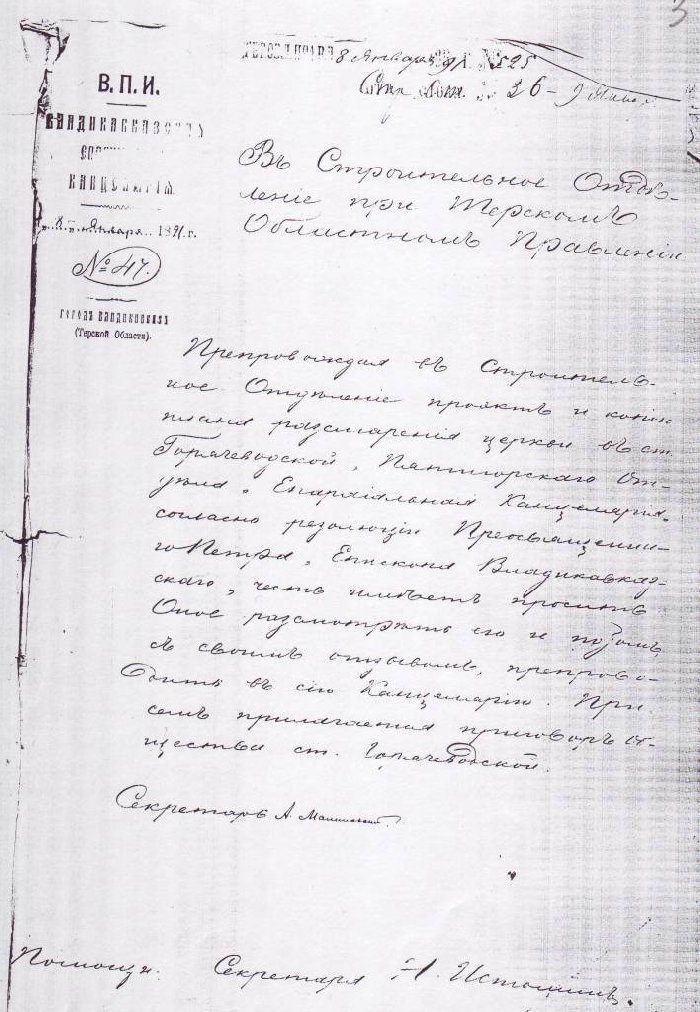 3
8 Января 91 г. № 525
В. П. И.
ВЛАДИКАВКАЗСКАЯ
КАНЦЕЛЯРІЯ
8 Января 1891 г.
№ 47.
ГОРОДЪ ВЛАДИКАВКАЗЪ
(Терской Области).
Въ Строительное Отдѣ-
леніе при Терскомъ
Областномъ Правленіи
Препровождая въ Строитель-
ное Отдѣленіе проэктъ и копію
плана разширенія церкви въ ст.
Горячеводской, Пятигорскаго От-
дѣла, Епархіальная Канцелярія,
согласно резолюціи Преосвященнѣ-
го Петра, Епископа Владикавказ-
скаго, честь имѣетъ просить
Оное разсмотрѣть его и потомъ,
съ своимъ отзывомъ, препрово-
дить въ сію Канцелярію. При
семъ прилагается приговоръ об-
щества ст. Горячеводской.
Секретарь А.
Помощн. Секретаря Н.